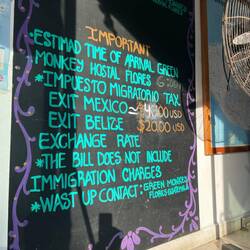 IMPORTANT
*ESTIMAD TIME OF ARRIVAL GREEN
MONKEY HOSTAL FLORES
*IMPUESTO MIGRATORIO TAX
EXIT MEXICO = USD
EXIT BELIZE $20.00 USD
EXCHANGE RATE
*THE BILL DOES NOT INCLUDE
IMMIGRATION CHARGES
*WAST UP CONTACT: GREEN MONKEY
FLORES GUATEMALA